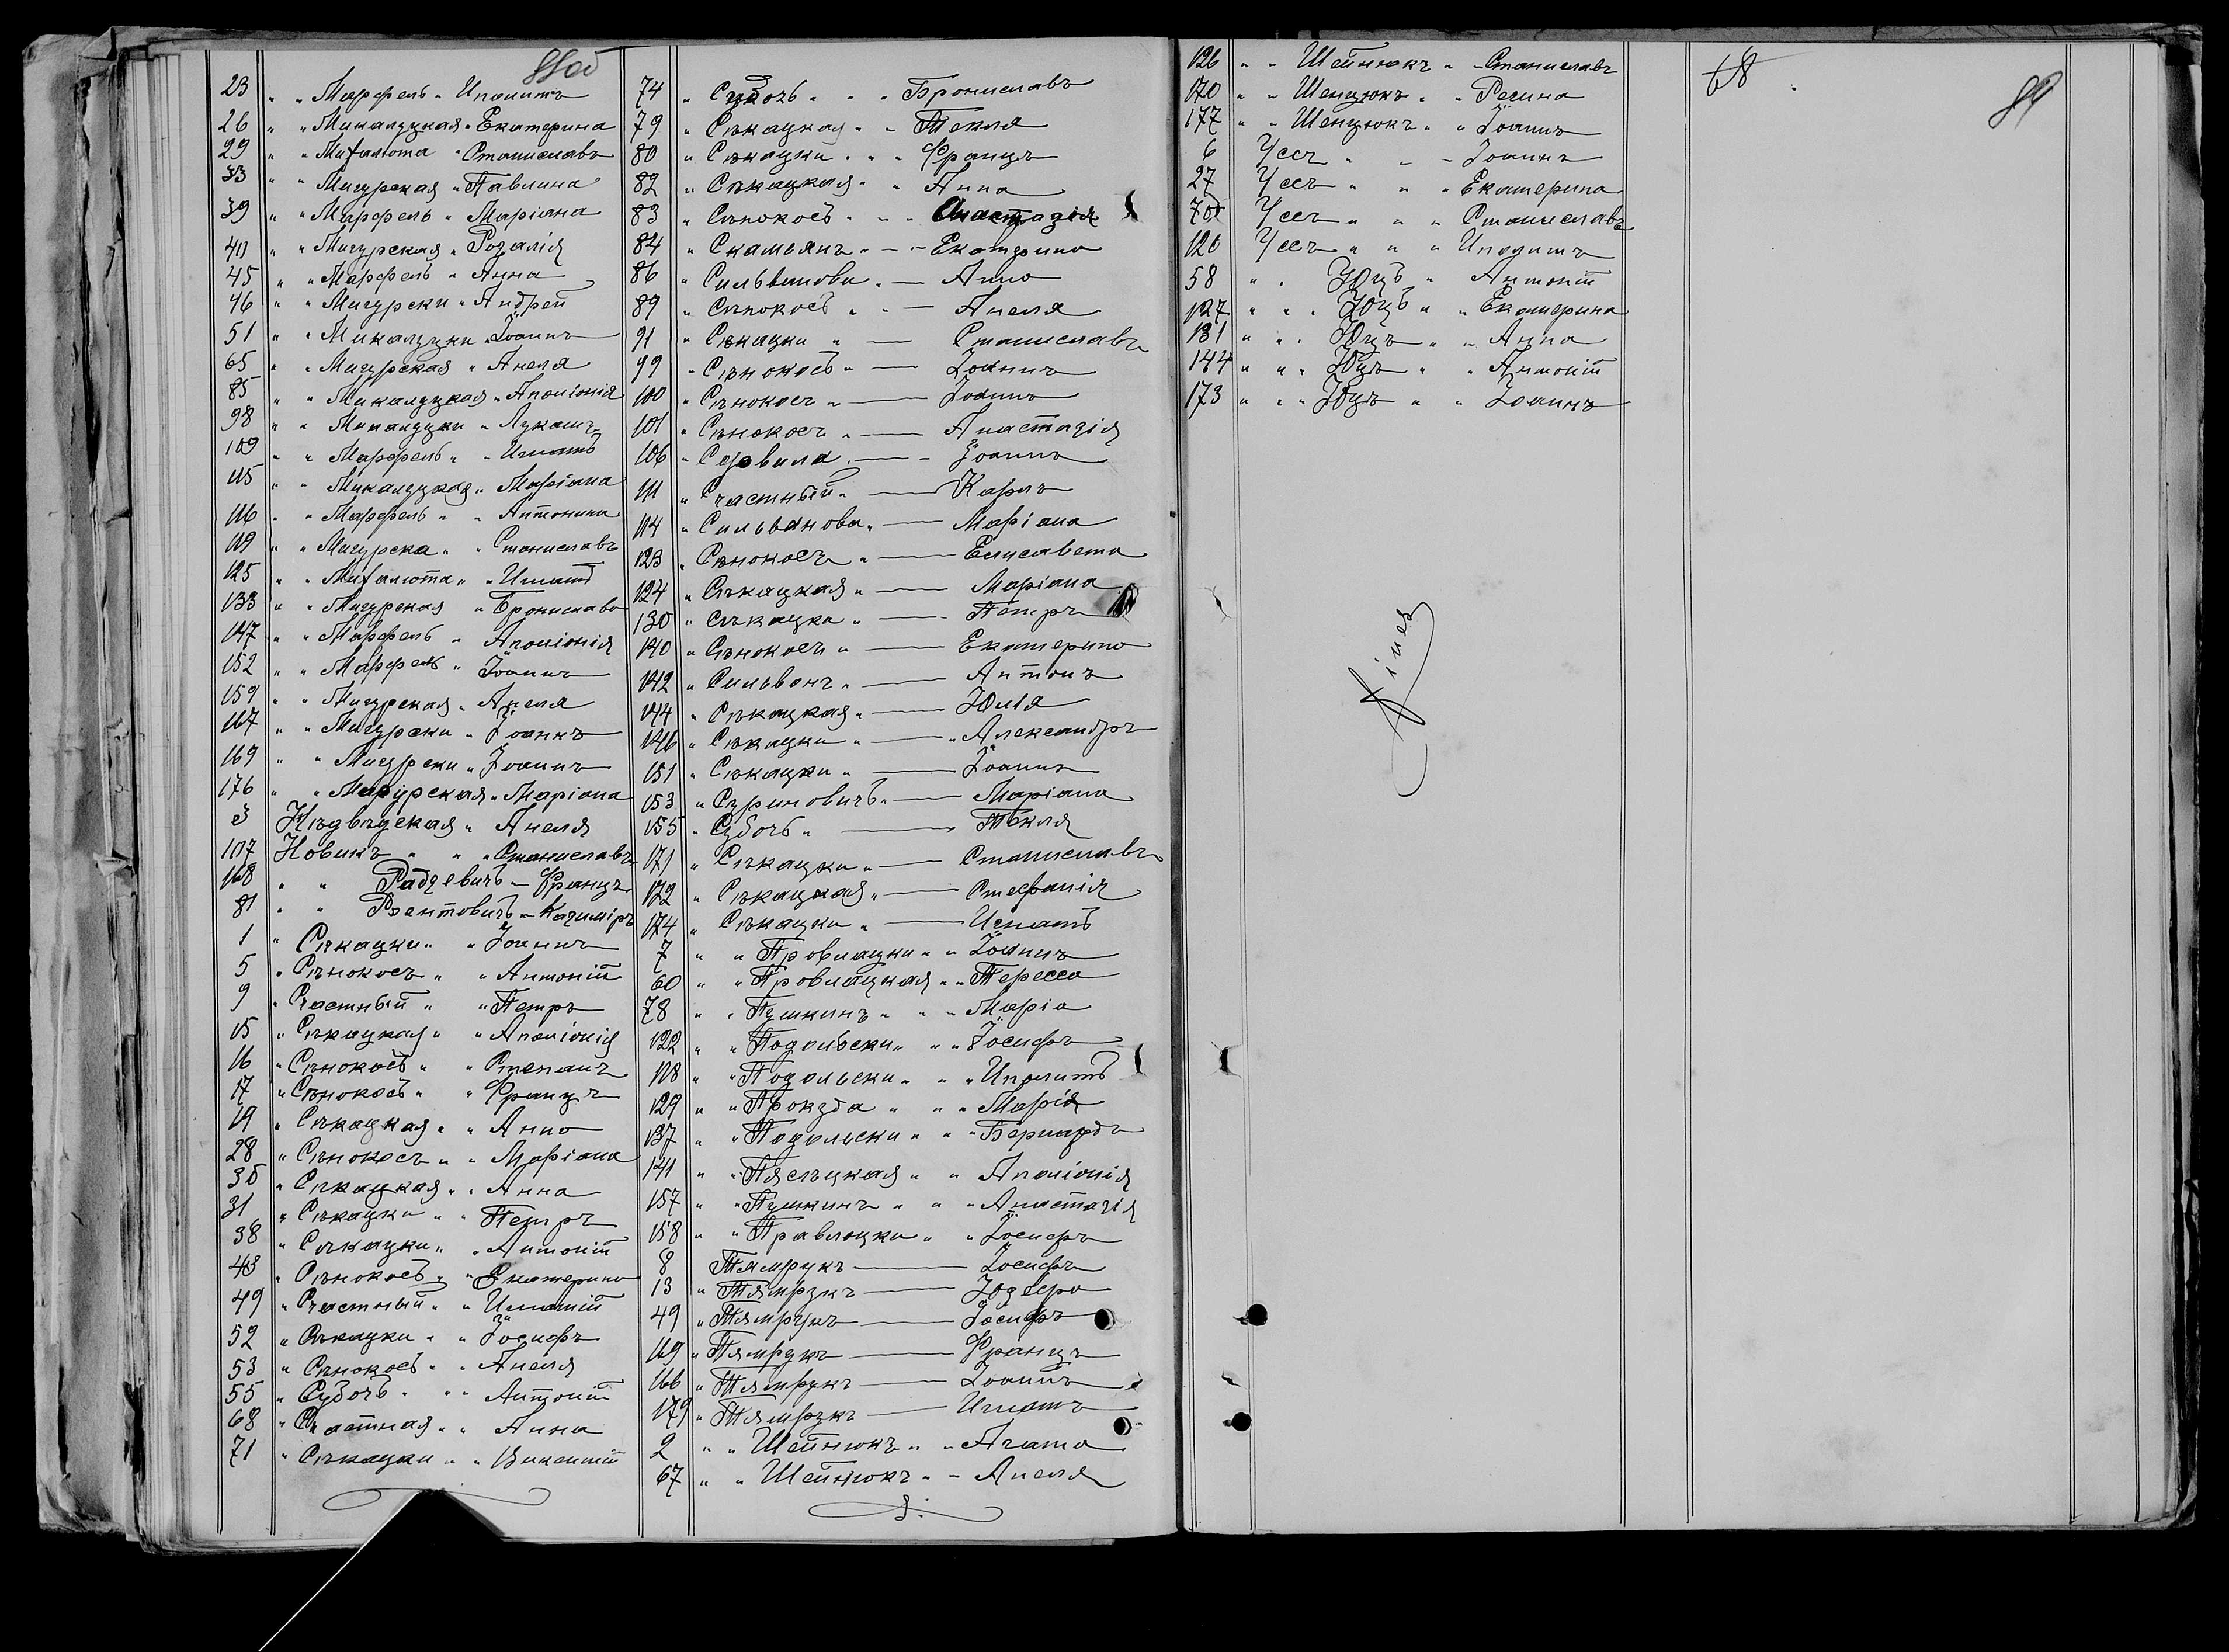 88об
23 " " Марфель " Иполитъ
26 " " Микалуцкая " Екатерина
29 " " Мифалюта " Станиславъ
33 " " Мигурская " Павлина
39 " " Марфель " Маріана
41 " " Мигурская " Розалія
45 " " Марфель " Анна
46 " " Мигурски " Андрей
51 " " Микалуцки " Іоаннъ
65 " " Мигурская " Анеля
85 " " Микалуцкая " Аполіонія
98 " " Микалуцки " Лукашъ
109 " " Марфель " " Игнатъ
115 " " Микалуцкая " Маріана
116 " " Марфель " " Антонина
119 " " Мигурска " " Станиславъ
125 " " Мифалюта " " Игнатъ
133 " " Мигурская " Бронислава
147 " " Марфель " Аполіонія
152 " " Марфель " Іоаннъ
159 " " Мигурская " Анеля
167 " " Мигурски " Іоаннъ
169 " " Мигурски " Іоаннъ
176 " " Мазурская " Маріана
3 Нѣдвѣдская " Анеля
107 Новикъ " " " Станиславъ
168 " " Радзевичъ — Францъ
81 " " Рентовичъ — Казиміръ
1 " Сѣкацки " " Іоаннъ
5 " Сѣнокосъ " " Антоній
9 " Счастный " " Петръ
15 " Сѣкацкая " " Аполіонія
16 " Сѣнокосъ " " Степанъ
17 " Сѣнокосъ " " Францъ
19 " Сѣкацкая " " Анна
28 " Сѣнокосъ " " Маріана
30 " Сѣкацкая " " Анна
31 " Сѣкацки " " Петръ
38 " Сѣкацки " " Антоній
43 " Сѣнокосъ " " Екатерина
49 " Счастный " " Игнатій
52 " Сѣкацки " " Іосифъ
53 " Сѣнокосъ " " Анеля
55 " Субочъ " " " Антоній
68 " Счастная " " Анна
71 " Сѣкацки " " Викентій
74 " Субочъ " " " Брониславъ
79 " Сѣкацкая " " Текля
80 " Сѣкацки " " " Францъ
82 " Сѣкацкая " " Анна
83 " Сѣнокосъ " " " Анастазія
84 " Скамьянъ " — " Екатерина
86 " Сильванова " — Анна
89 " Сѣнокосъ " " — Анеля
91 " Сѣкацки " — Станиславъ
99 " Сѣнокосъ " — Іоаннъ
100 " Сѣнокосъ " — Іоаннъ
101 " Сѣнокосъ " — Анастазія
106 " Сурвила " — Іоаннъ
111 " Счастный " — Карлъ
114 " Сильванова " — Маріана
123 " Сѣнокосъ " — Елисавета
124 " Сѣкацкая " — Маріана
130 " Сѣкацки " — Петръ
140 " Сѣнокосъ " — Екатерина
142 " Сильванъ " — Антонъ
144 " Сѣкацкая " — Юлія
146 " Сѣкацки " — " Александръ
151 " Сѣкацки " — Іоаннъ
153 " Суриновичъ " — Маріана
155 " Субочъ " — Текля
171 " Сѣкацки " — Станиславъ
172 " Сѣкацкая " — Стефанія
174 " Сѣкацки " — Игнатъ
7 " " Провлацки " " Іоаннъ
60 " " Провлацкая " " Тересса
78 " " Пушкинъ " " " Марія
122 " " Подольски " " " Іосифъ
128 " " Подольски " " " Иполитъ
129 " " Прокуда " " " Марія
137 " " Подольски " " " Бернардъ
141 " " Пясѣцкая " " Аполіонія
157 " " Пушкинъ " " " Анастазія
158 " " Правлоцки " " Іосифъ
8 Тямрукъ — Іосифъ
13 " Тямрукъ — Юзефа
49 " Тямрукъ — Іосифъ
169 " Тямрукъ — Францъ
166 " Тямрукъ — Іоаннъ
179 " Тямрукъ — Игнатъ
2 " " Шейнюкъ " " Агата
67 " " Шейнюкъ " — Анеля
126 " " Шейнюкъ " — Станиславъ
170 " " Шенцюкъ " " Регина
177 " " Шенцюкъ " " Іоаннъ
6 Усъ " " — Іоаннъ
27 Усъ " " " Екатерина
70 Усъ " " " Станиславъ
120 Усъ " " " Иполитъ
58 " " Юцъ " Антоній
127 " " " Юцъ " " Екатерина
131 " " " Юцъ " — Анна
144 " " " Юцъ " " Антоній
173 " " " Юцъ " " Іоаннъ
68
89
Fines